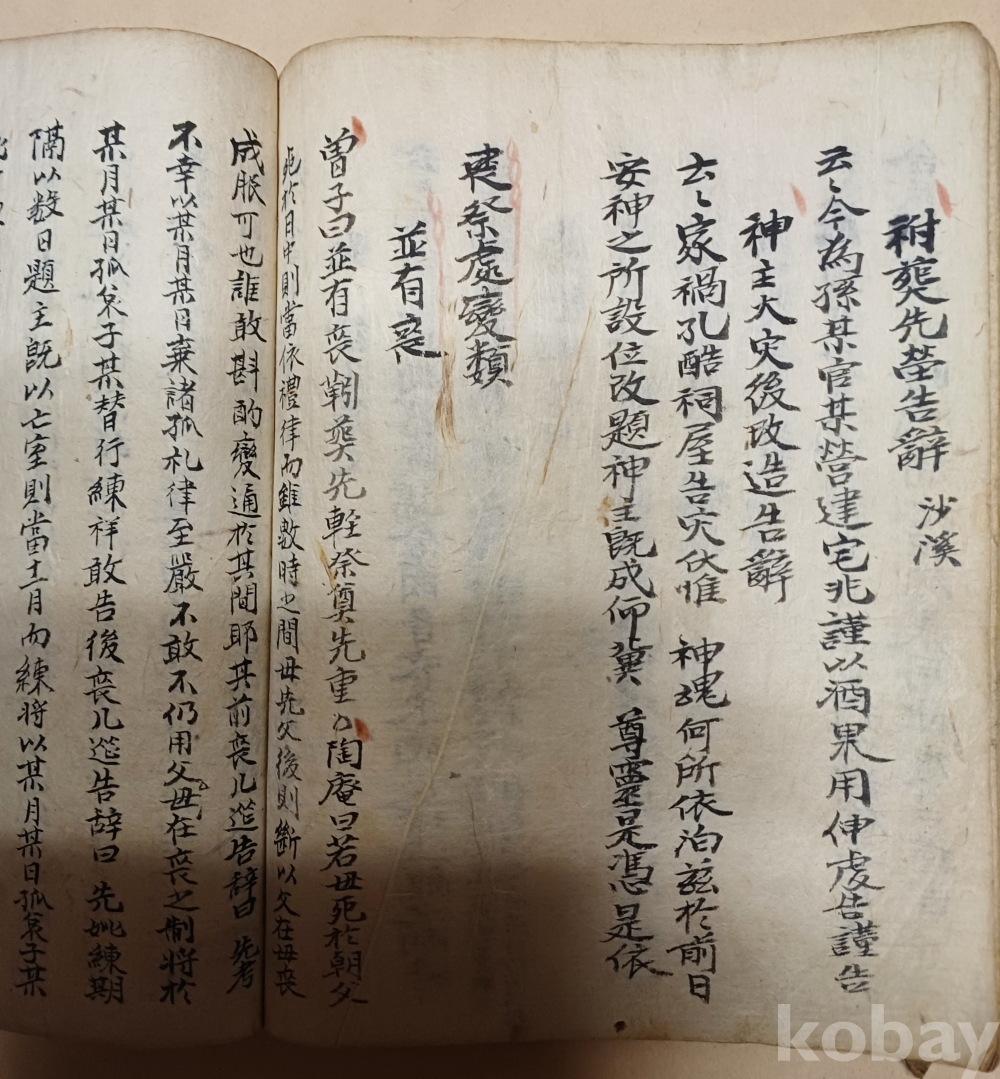 祔葬先塋告辭 沙溪
云〻今為孫某官某營建宅兆謹以酒果用伸虔告謹告
神主火灾後改造告辭
云〻家禍孔酷祠屋告灾伏惟 神魂何所依泊茲於前日
安神之所設位改題神主既成仰冀 尊靈是憑是依
喪祭處變類
並有喪
曽子曰並有喪葬先輕奈奠先重〻陶庵曰若母死於朝父
死於日中則當依禮律而雖數時之間母先父後則斷以父在母喪
成服可也誰敢斟酌變通於其間耶其前喪几筵告辞曰 先考
不幸以某月某日棄諸孤礼律至嚴不敢不仍用父在母喪之制將於
某月某日孤哀子某替行練祥敢告後喪几筵告辞曰 先妣練期
隔以数日題主既以亡室則當十一月而練将以某月某日孤哀子某
kobay